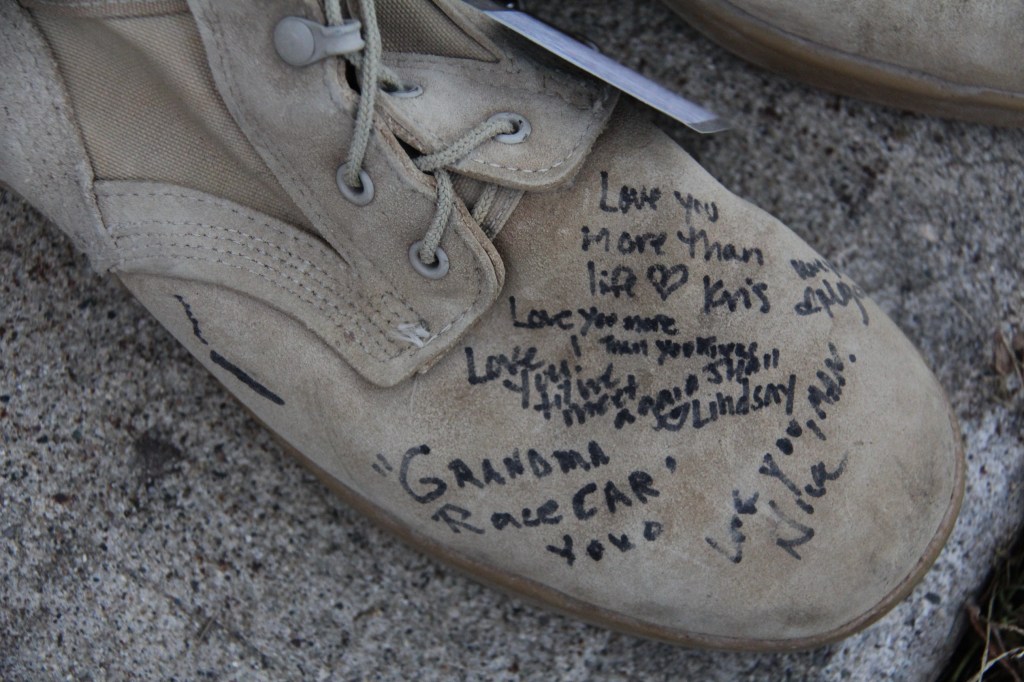 Love you
more Than
life ♡ Kris
Love you more
Than you
Love
till we
meet again
♡ Lindsay
"GRANDMA
RaceCAR"
xoxo
Love You, Man.
Nica